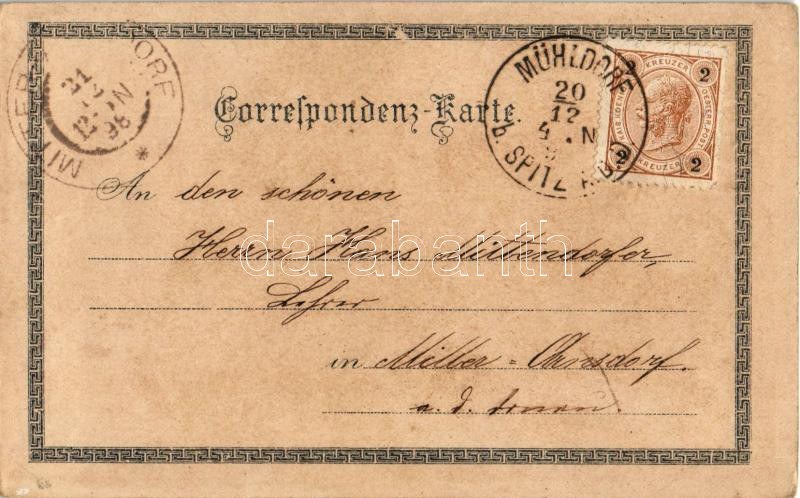 MITTER DORF
21
12
12 N
98
*
Correspondenz-Karte.
MÜHLDORF
20
12
4 N
b. SPITZ
2 KREUZER 2
KAIS. KOEN. OESTERR. POST
2 KREUZER 2
An den schönen
Herrn Hans Mittendorfer,
Lehrer
in Mitter = Arnsdorf.
a. d. Donau.
darabanth